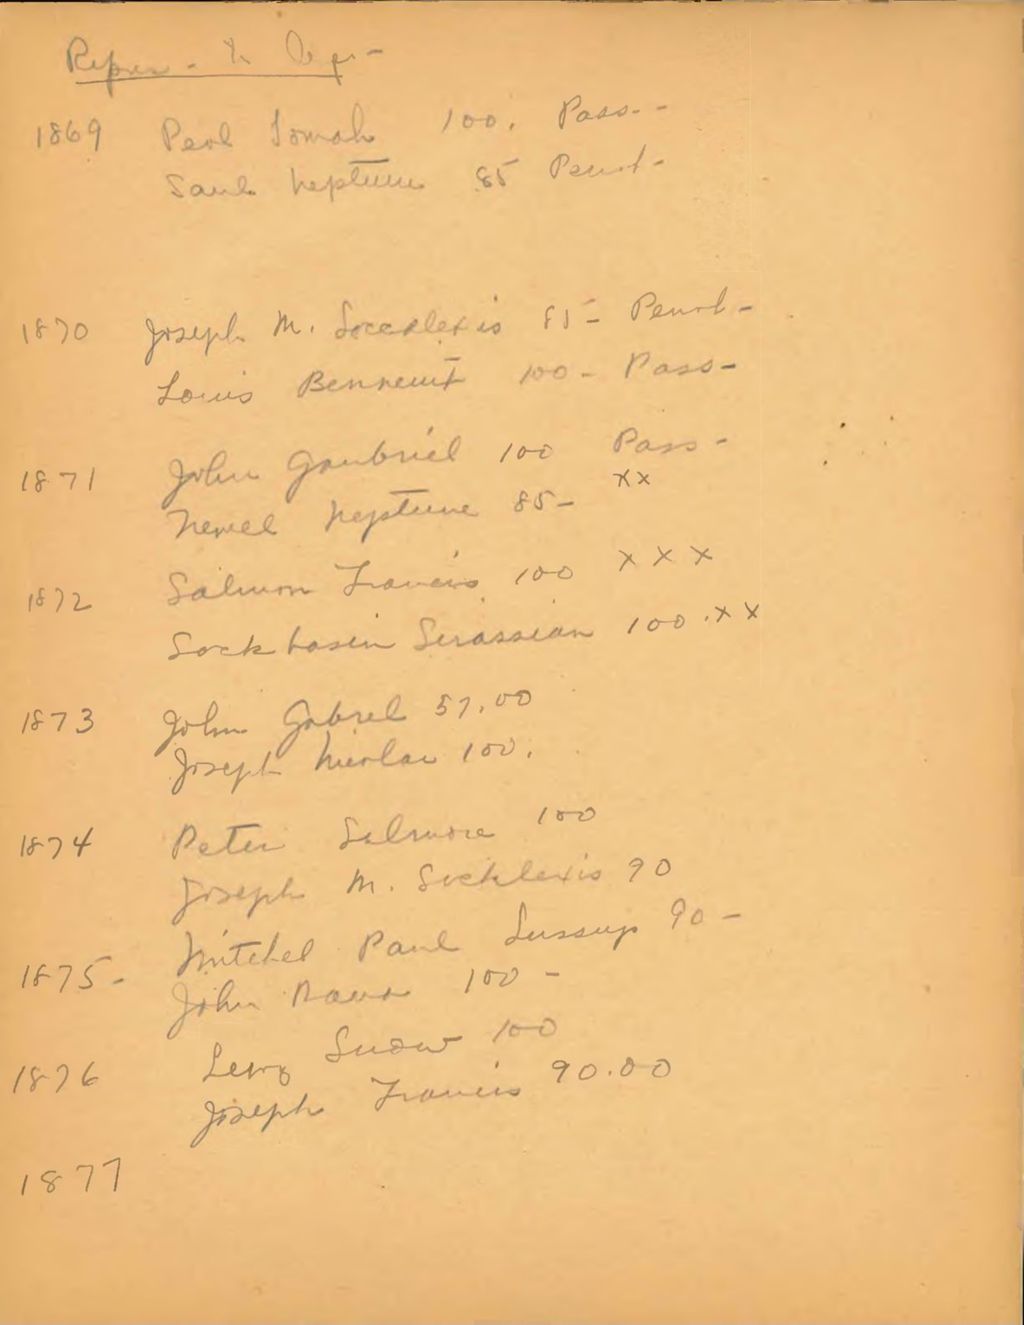 Repres - to Leg. -
1869 Peol Tomah 100. Pass. -
Saul Neptune 85 Penob -
1870 Joseph M. Soccalexis 85 - Penob -
Louis Bennewit 100 - Pass -
1871 John Gaubriel 100 Pass -
Newel Neptune 85 - xx
1872 Salmon Francis 100 x x x
Sockbasin Serassian 100 . x x
1873 John Gabrel 57.00
Joseph Nicolar 100.
1874 Peter Selmore 100
Joseph M. Socklexis 90
1875 - Mitchel Paul Sussup 90 -
John Dana 100 -
1876 Levy Snow 100
Joseph Francis 90.00
1877